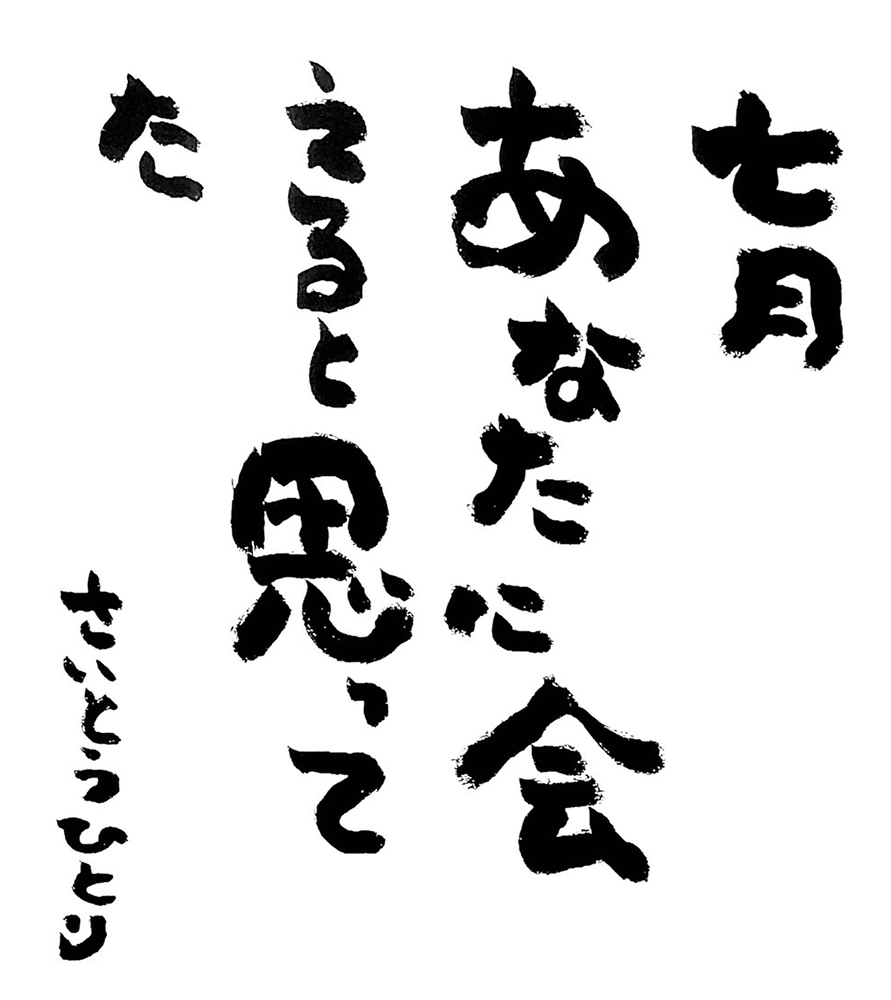 七月
あなたに会
えると思って
た
さいとうひとり